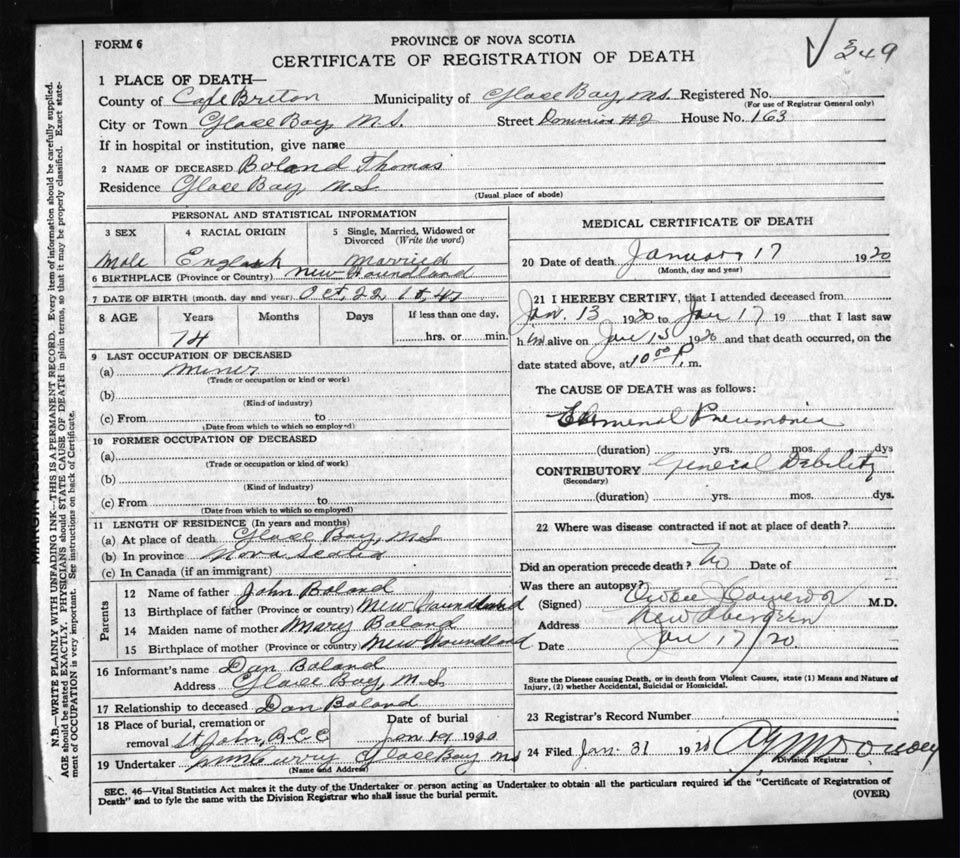 FORM 6
PROVINCE OF NOVA SCOTIA
CERTIFICATE OF REGISTRATION OF DEATH
349
1 PLACE OF DEATH—
County of Cape Breton Municipality of Glace Bay, N.S. Registered No.
(For use of Registrar General only)
City or Town Glace Bay, N.S. Street Dominion #2 House No. 163
If in hospital or institution, give name
2 NAME OF DECEASED Boland Thomas
Residence Glace Bay N.S
(Usual place of abode)
PERSONAL AND STATISTICAL INFORMATION
3 SEX 4 RACIAL ORIGIN 5 Single, Married, Widowed or Divorced (Write the word)
Male English Married
6 BIRTHPLACE (Province or Country) New Foundland
7 DATE OF BIRTH (month, day and year) Oct, 22
8 AGE Years Months Days If less than one day,
74 hrs. or min.
9 LAST OCCUPATION OF DECEASED
(a) Miner
(Trade or occupation or kind or work)
(b)
(Kind of industry)
(c) From to
(Date from which to which so employed)
10 FORMER OCCUPATION OF DECEASED
(a)
(Trade or occupation or kind of work)
(b)
(Kind of industry)
(c) From to
(Date from which to which so employed)
11 LENGTH OF RESIDENCE (In years and months)
(a) At place of death Glace Bay, N.S
(b) In province Nova Scotia
(c) In Canada (if an immigrant)
Parents
12 Name of father John Boland
13 Birthplace of father (Province or country) New Foundland
14 Maiden name of mother Mary Boland
15 Birthplace of mother (Province or country) New Foundland
16 Informant's name Dan Boland
Address Glace Bay, N.S.
17 Relationship to deceased Dan Boland
18 Place of burial, cremation or Date of burial
removal St John, Jan 19 1920
19 Undertaker Curry Glace Bay NS
(Name and Address)
MEDICAL CERTIFICATE OF DEATH
20 Date of death January 17 1920
(Month, day and year)
21 I HEREBY CERTIFY, that I attended deceased from
Jan. 13 1920 to Jan 17 19 that I last saw
him alive on Jan 15 1920 and that death occurred, on the
date stated above, at 10 00 P. m.
The CAUSE OF DEATH was as follows:
Pneumonia
(duration) yrs. mos. dys
CONTRIBUTORY General Debility
(Secondary)
(duration) yrs. mos. dys.
22 Where was disease contracted if not at place of death?
Did an operation precede death? No Date of
Was there an autopsy?
(Signed) M.D.
Address New Aberdeen
Date Jan 17/20
State the Disease causing Death, or in death from Violent Causes, state (1) Means and Nature of Injury, (2) whether Accidental, Suicidal or Homicidal.
23 Registrar's Record Number
24 Filed Jan. 31 1920
Division Registrar
SEC. 46—Vital Statistics Act makes it the duty of the Undertaker or person acting as Undertaker to obtain all the particulars required in the "Certificate of Registration of
Death" and to fyle the same with the Division Registrar who shall issue the burial permit. (OVER)
N.B.—WRITE PLAINLY WITH UNFADING INK—THIS IS A PERMANENT RECORD. Every item of information should be carefully supplied.
AGE should be stated EXACTLY. PHYSICIANS should STATE CAUSE OF DEATH in plain terms, so that it may be properly classified. Exact statement of OCCUPATION is very important. See instructions on back of Certificate.